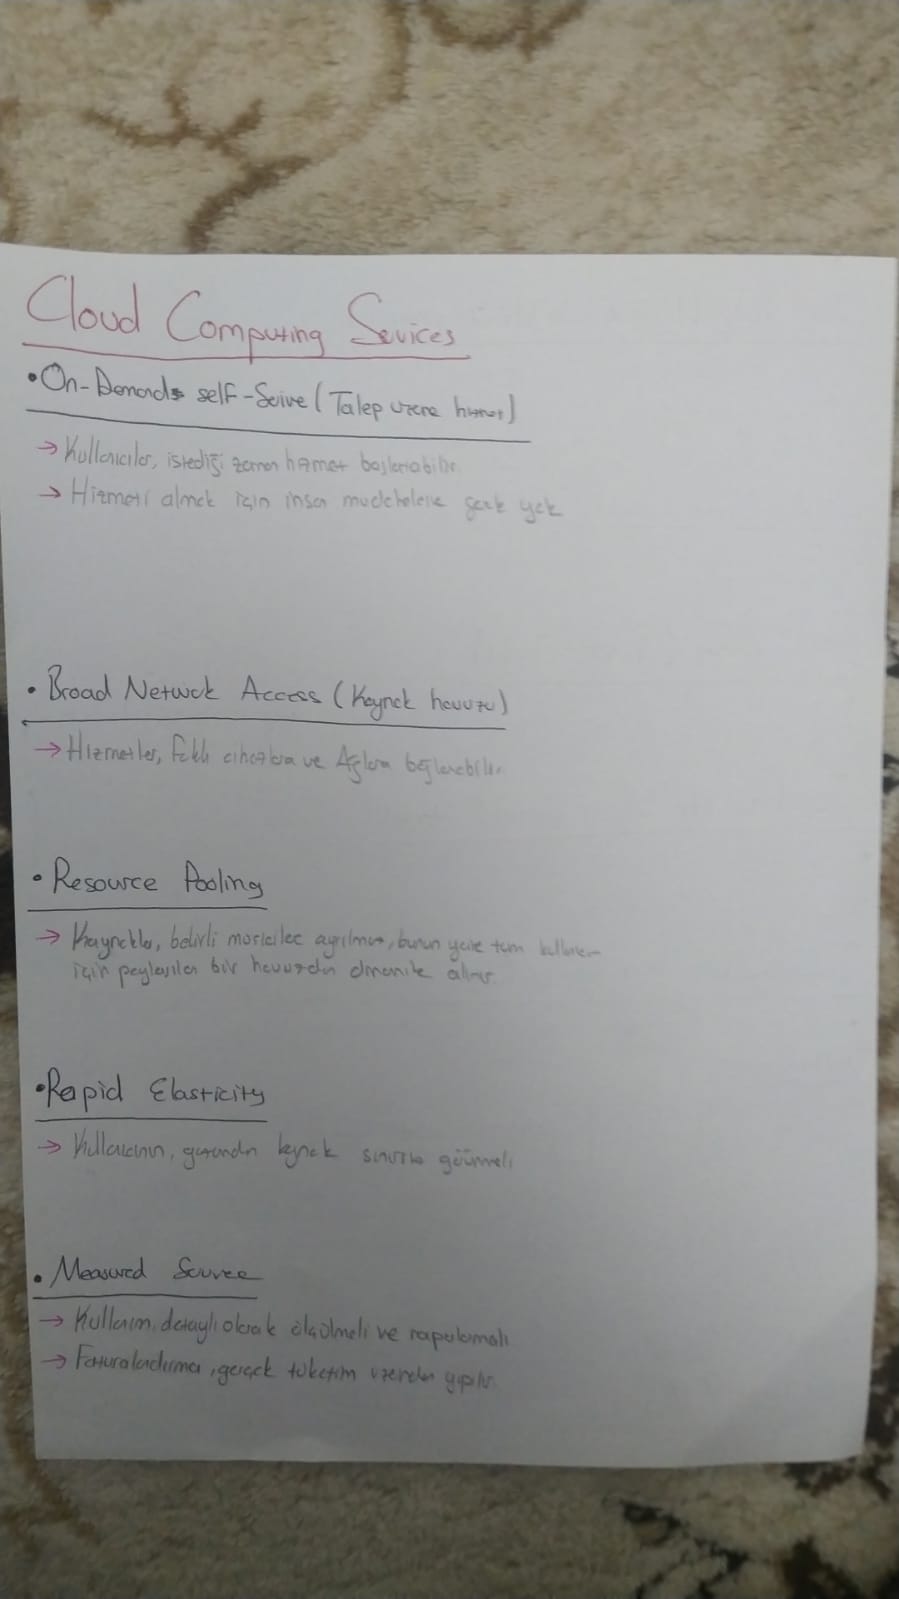 Cloud Computing Sevices
• On-Demands self-Seive (Talep üzere hizmet)
→ Kullanıcılar, istediği zaman hizmet başlatabilir.
→ Hizmeti almak için insan müdehelene gerek yok
• Broad Netwok Access (Kaynak havuzu)
→ Hizmetler, farklı cihazlara ve Ağlara bağlanabilir.
• Resource Pooling
→ Kaynaklar, belirli ayrılmaz, bunun yerine tüm
için paylaşılan bir havuzdan alınır.
• Rapid Elasticity
→ Kullanıcının, kaynak sınırsız görünmeli
• Measured
→ Kullanım, detaylı olarak ölçülmeli ve raporlamalı
→ Faturalandırma, gerçek tüketim üzerinden yapılır.